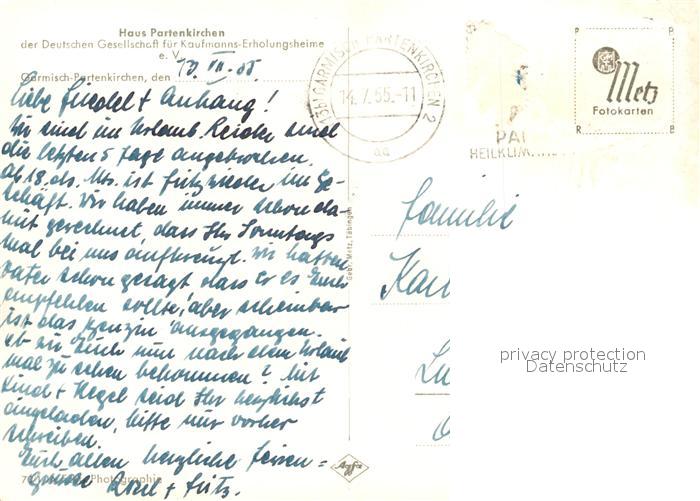 Haus Partenkirchen
der Deutschen Gesellschaft für Kaufmanns-Erholungsheime
e. V.
Garmisch-Partenkirchen, den 13. VII. 55
Liebe Friedel + Anhang!
Wir sind im Urlaub. Leider sind
die letzten 5 Tage angebrochen.
Ab 18. ds. Mts. ist Fritz wieder im Ge-
schäft. Wir haben immer schon da-
mit gerechnet, dass Ihr Sonntags
mal bei uns aufkreuzt. Wir hatten
Vater schon gesagt dass er es Euch
empfehlen sollte, aber scheinbar
ist das Benzin ausgegangen.
Ob wir Euch nun nach dem Urlaub
mal zu sehen bekommen? Mit
Kind + Kegel seid Ihr herzlichst
eingeladen, bitte nur vorher
schreiben.
Euch allen herzliche Ferien =
grüsse + Fritz.
Photographie
Gebr. Metz, Tübingen
Agfa
GARMISCH-PARTENKIRCHEN 2
14.7.55.-11
PAR
HEILKLIMA
Metz
Fotokarten
P
P
R
R
Familie
Kau
Lu
privacy protection
Datenschutz